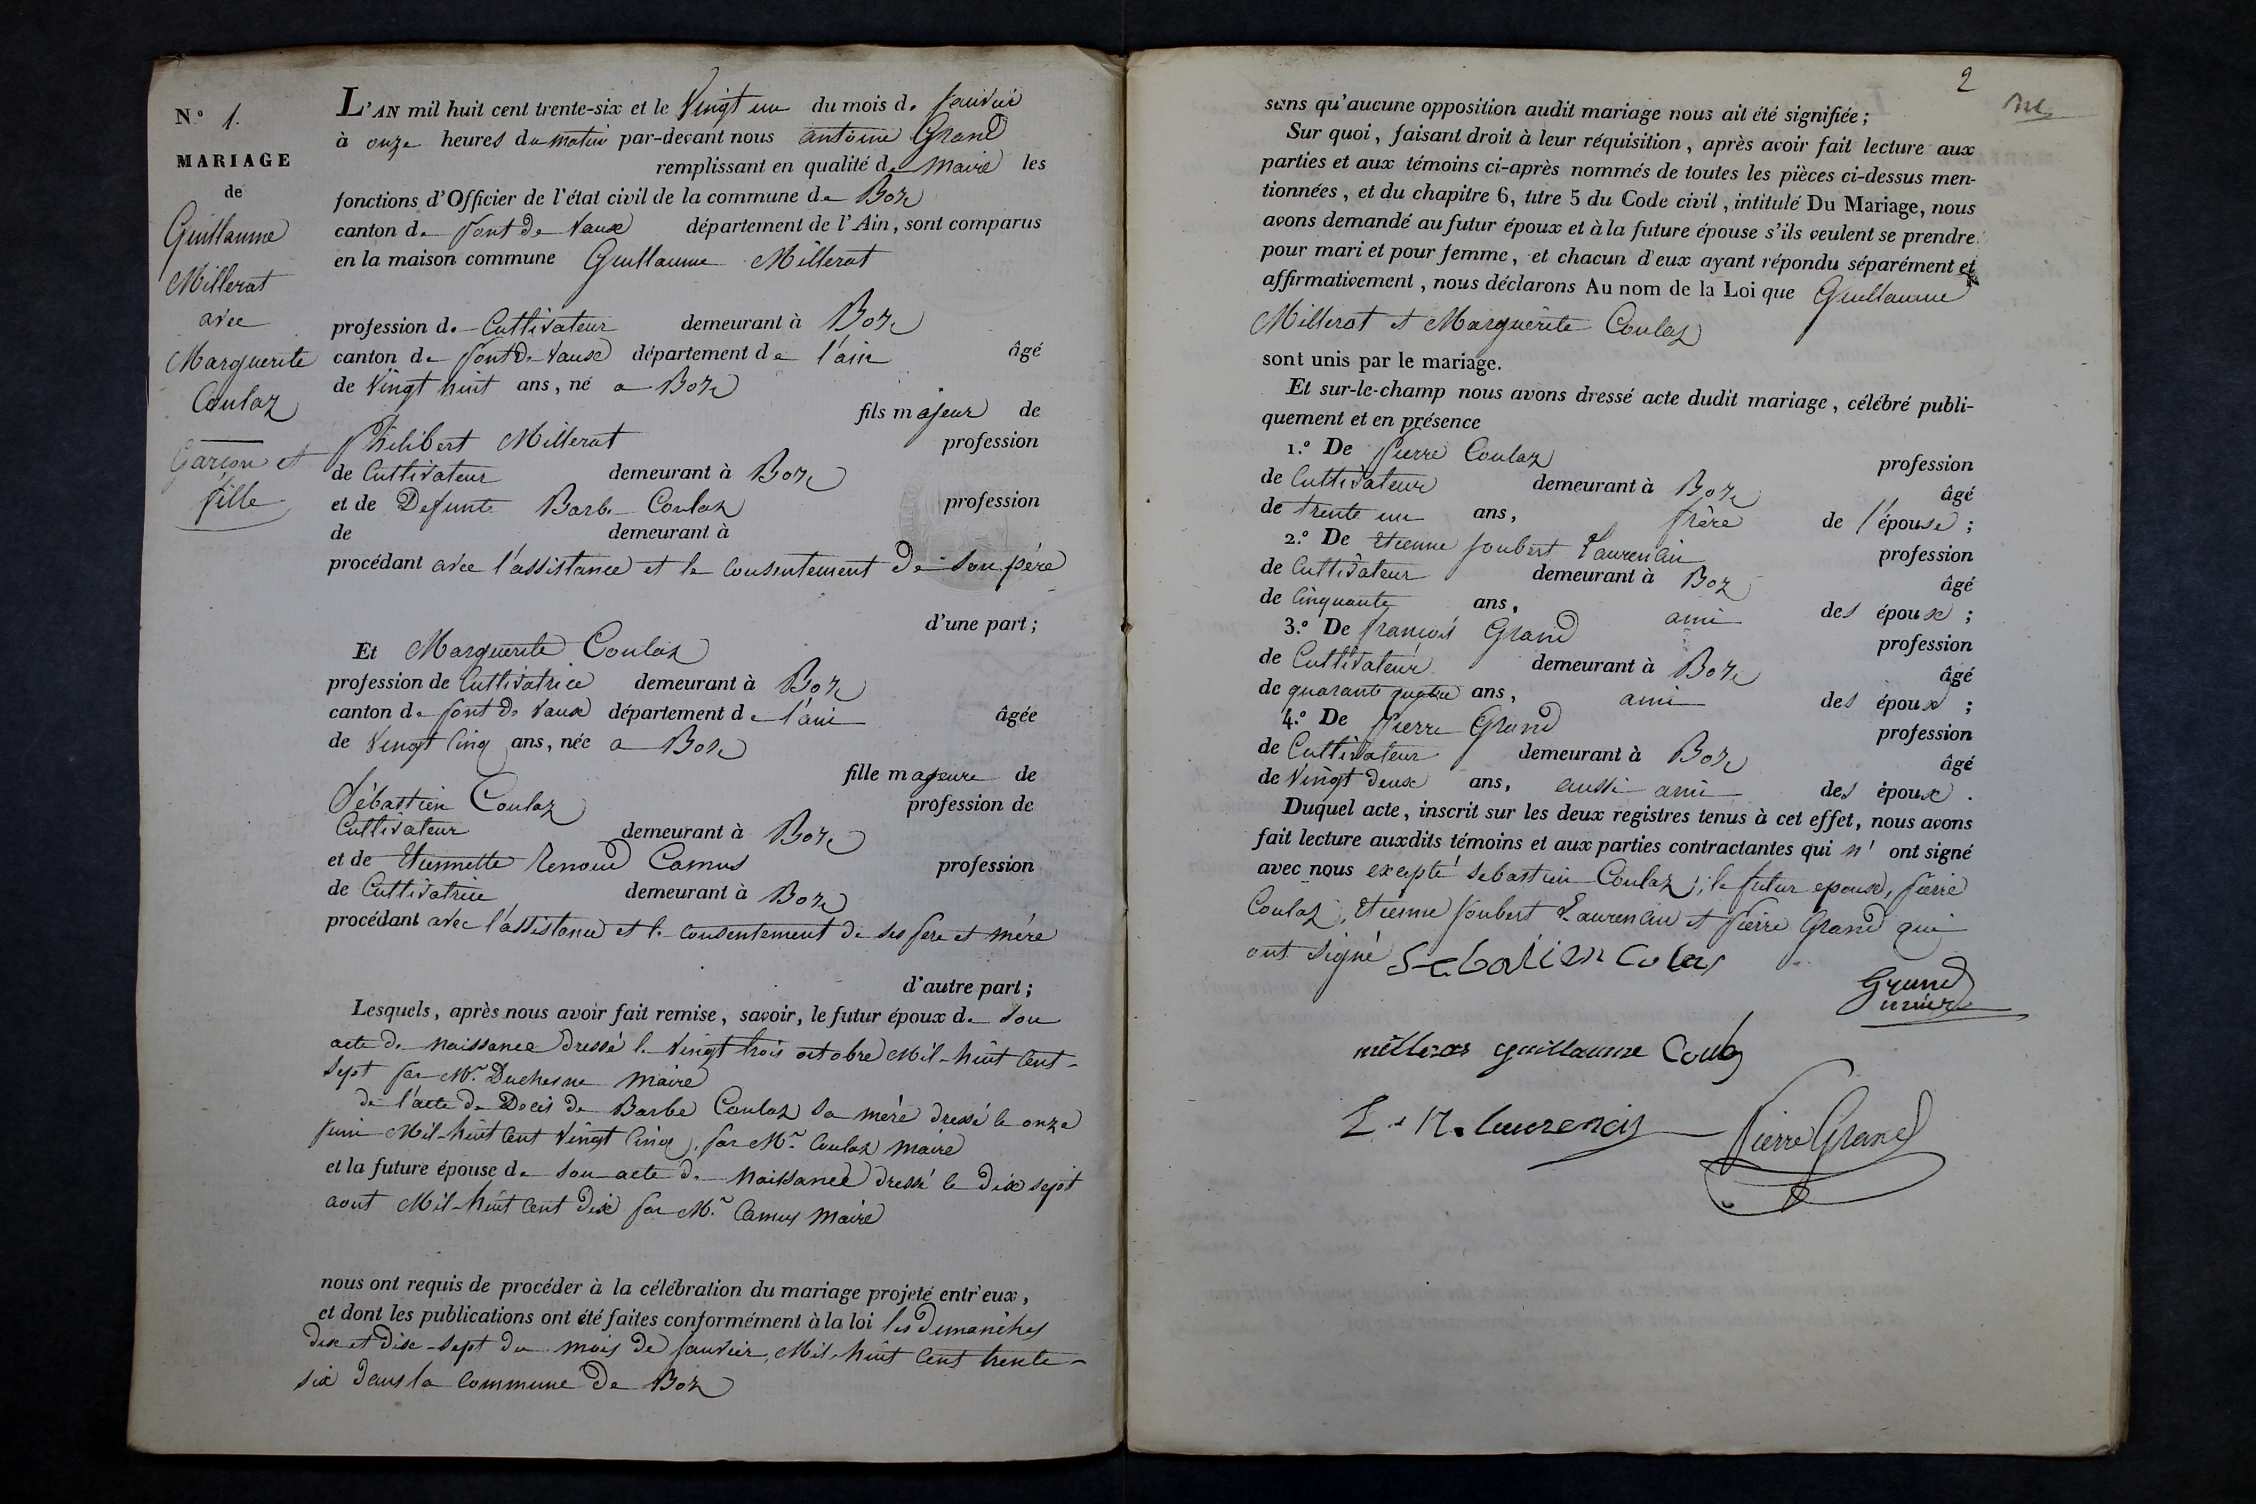 N.º 1.
MARIAGE
de
Guillaume
Millerat
avec
Marguerite
Coulaz
Garçon et
fille
L'AN mil huit cent trente-six et le Vingt un du mois de janvier
à onze heures du matin par-devant nous antoine Grand
remplissant en qualité de Maire les
fonctions d'Officier de l'état civil de la commune de Boz
canton de pont de Vaux département de l'Ain, sont comparus
en la maison commune Guillaume Millerat
profession de Cultivateur demeurant à Boz
canton de pont de Vaux département de l'ain âgé
de Vingt huit ans, né a Boz
fils majeur de
Philibert Millerat profession
de Cultivateur demeurant à Boz
et de Defunte Barbe Coulaz profession
de demeurant à
procédant avec l'assistance et le consentement de son père
d'une part;
Et Marguerite Coulaz
profession de Cultivatrice demeurant à Boz
canton de pont de Vaux département de l'ain âgée
de Vingt cinq ans, née a Boz
fille majeure de
Sébastien Coulaz profession de
Cultivateur demeurant à Boz
et de Etiennette Renoud Camus profession
de Cultivatrice demeurant à Boz
procédant avec l'assistance et le consentement de ses pere et mère
d'autre part;
Lesquels, après nous avoir fait remise, savoir, le futur époux de son
acte de naissance dressé le Vingt trois octobre Mil-huit Cent-
sept par Mr. Duchesne maire
de l'acte de Décès de Barbe Coulaz sa mère dressé le onze
juin Mil-huit Cent Vingt Cinq, par Mr. Coulaz maire
et la future épouse de son acte de naissance dressé le dix sept
aout Mil-huit Cent dix par Mr. Camus maire
nous ont requis de procéder à la célébration du mariage projeté entr'eux,
et dont les publications ont été faites conformément à la loi les dimanches
dix et dix-sept du mois de janvier, Mil-huit Cent trente-
six dans la commune de Boz
2
sans qu'aucune opposition audit mariage nous ait été signifiée;
Sur quoi, faisant droit à leur réquisition, après avoir fait lecture aux
parties et aux témoins ci-après nommés de toutes les pièces ci-dessus men-
tionnées, et du chapitre 6, titre 5 du Code civil, intitulé Du Mariage, nous
avons demandé au futur époux et à la future épouse s'ils veulent se prendre
pour mari et pour femme, et chacun d'eux ayant répondu séparément et
affirmativement, nous déclarons Au nom de la Loi que Guillaume
Millerat et Marguerite Coulaz
sont unis par le mariage.
Et sur-le-champ nous avons dressé acte dudit mariage, célébré publi-
quement et en présence
1.º De Pierre Coulaz profession
de Cultivateur demeurant à Boz âgé
de trente un ans, frère de l'épouse;
2.º De Etienne Joubert Laurencin profession
de Cultivateur demeurant à Boz âgé
de Cinquante ans, ami des époux;
3.º De françois Grand profession
de Cultivateur demeurant à Boz âgé
de quarante quatre ans, ami des époux;
4.º De Pierre Grand profession
de Cultivateur demeurant à Boz âgé
de Vingt deux ans, aussi ami des époux.
Duquel acte, inscrit sur les deux registres tenus à cet effet, nous avons
fait lecture auxdits témoins et aux parties contractantes qui n' ont signé
avec nous excepté Sebastien Coulaz, le futur epoux, pierre
Coulaz, Etienne Joubert Laurencin et Pierre Grand qui
ont signé
Grand
maire
millerat guillaume Coulaz
Pierre Grand